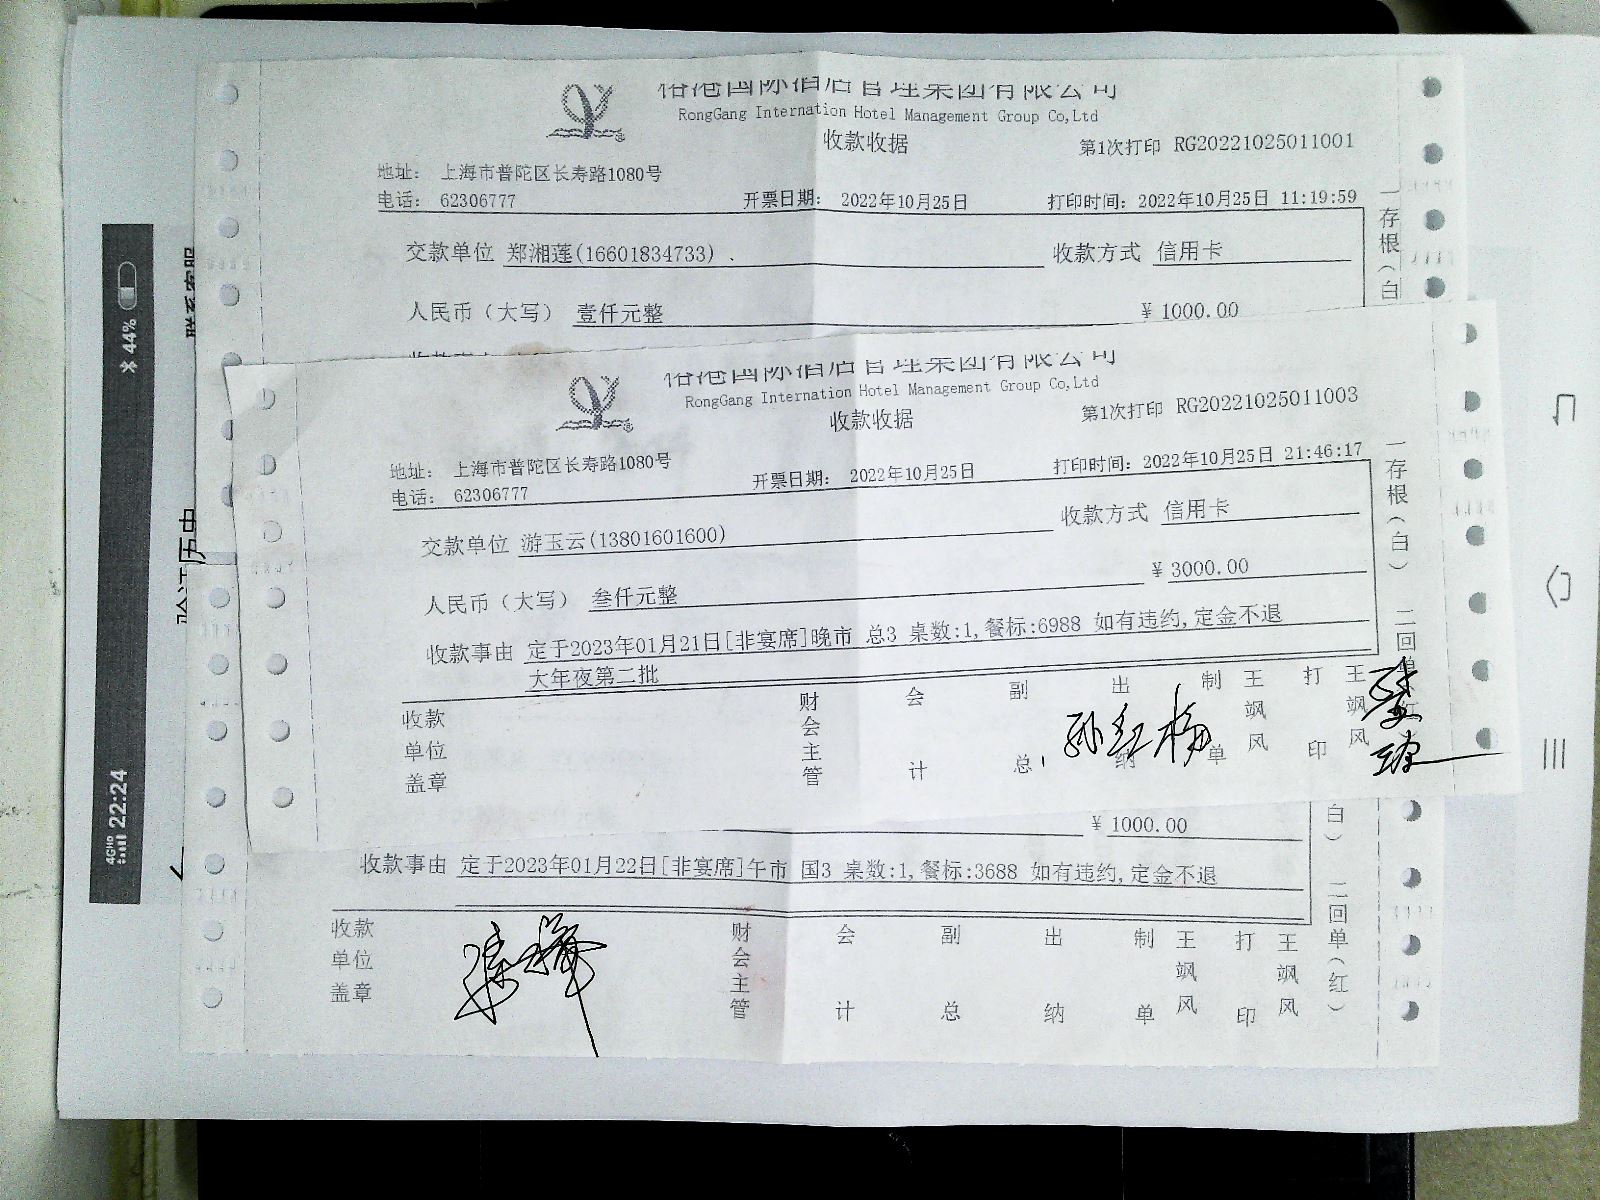 RongGang Internation Hotel Management Group Co,Ltd
收款收据
第1次打印 RG20221025011001
地址： 上海市普陀区长寿路1080号
电话： 62306777 开票日期： 2022年10月25日 打印时间：2022年10月25日 11:19:59
交款单位 郑湘莲(16601834733) 收款方式 信用卡
人民币（大写） 壹仟元整 ¥ 1000.00
一存根（白
国际酒店管理集团有限公司
RongGang Internation Hotel Management Group Co,Ltd
收款收据
第1次打印 RG20221025011003
地址： 上海市普陀区长寿路1080号
电话： 62306777 开票日期： 2022年10月25日 打印时间：2022年10月25日 21:46:17
交款单位 游玉云(13801601600) 收款方式 信用卡
人民币（大写） 叁仟元整 ¥ 3000.00
收款事由 定于2023年01月21日[非宴席]晚市 总3 桌数:1,餐标:6988 如有违约,定金不退
大年夜第二批
收款单位盖章 财会主管 会计 副总 出纳 制单 王飒风 打印 王飒风
孙红梅
一存根（白） 二回单
¥ 1000.00
收款事由 定于2023年01月22日[非宴席]午市 国3 桌数:1,餐标:3688 如有违约,定金不退
收款单位盖章 财会主管 会计 副总 出纳 制单 王飒风 打印 王飒风
白） 二回单（红）
44%
4GHD 22:24